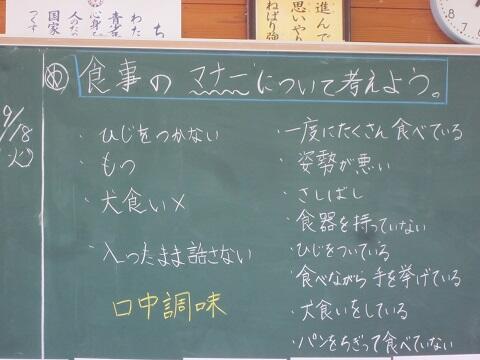 進んで
思いやり
ねばり強
わた
ち
青少
心身
人のため
国家
つくす
9/18
火
め 食事のマナーについて考えよう。
・ひじをつかない
・もつ
・犬食い×
・入ったまま話さない
口中調味
・一度にたくさん食べている
・姿勢が悪い
・さしばし
・食器を持っていない
・ひじをついている
・食べながら手を挙げている
・犬食いをしている
・パンをちぎって食べていない